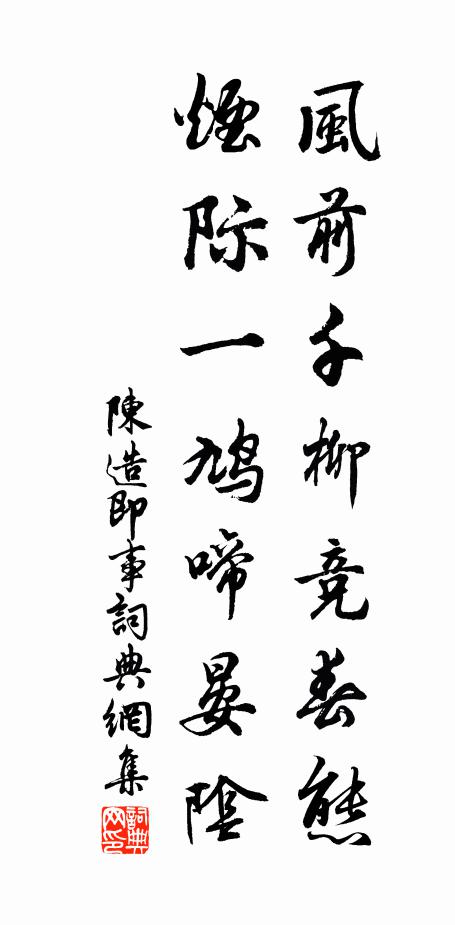 風前千柳竞春態
煙际一鳩啼晏陰
陳造即事詞典網集
詞典网印